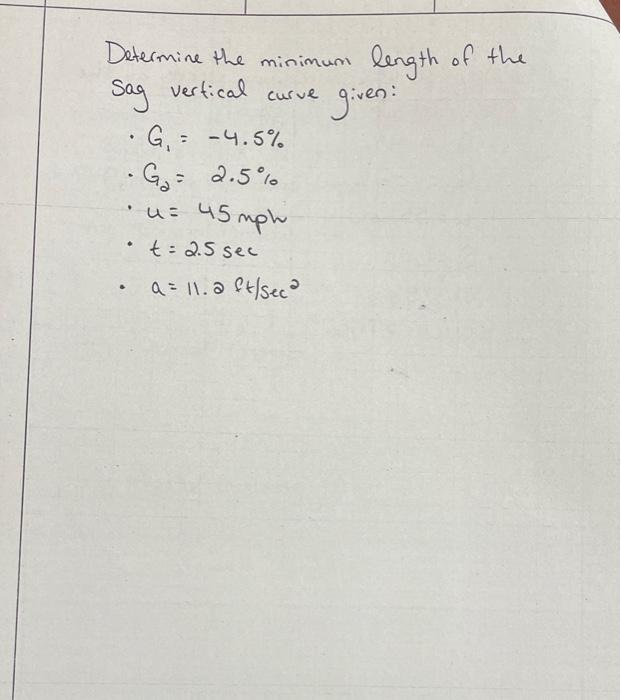 Determine the minimum length of the
Sag vertical curve given:
· G₁ = -4.5%
· G₂ = 2.5%
· u = 45 mph
· t = 2.5 sec
· a = 11.2 ft/sec²